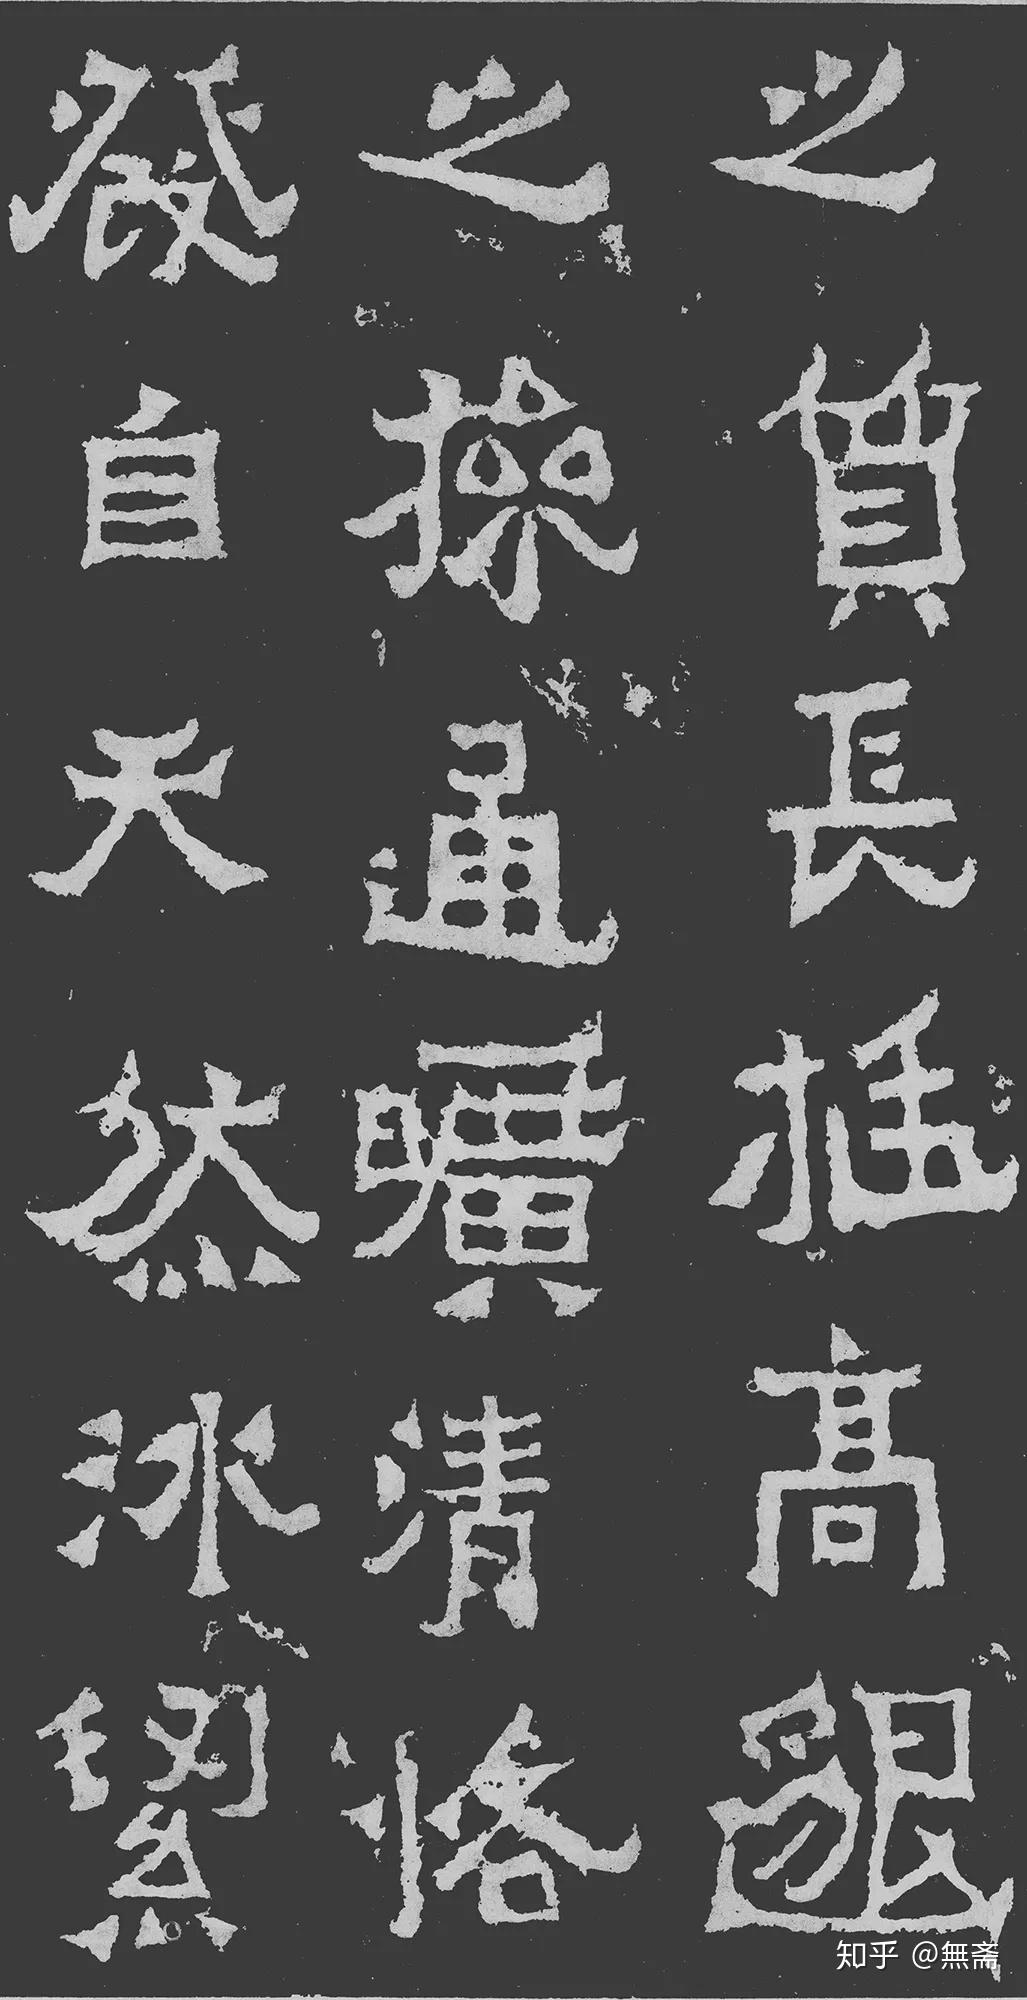 之質長挺高邈
之操通曠清恪
發自天然冰絜
知乎 @無斋